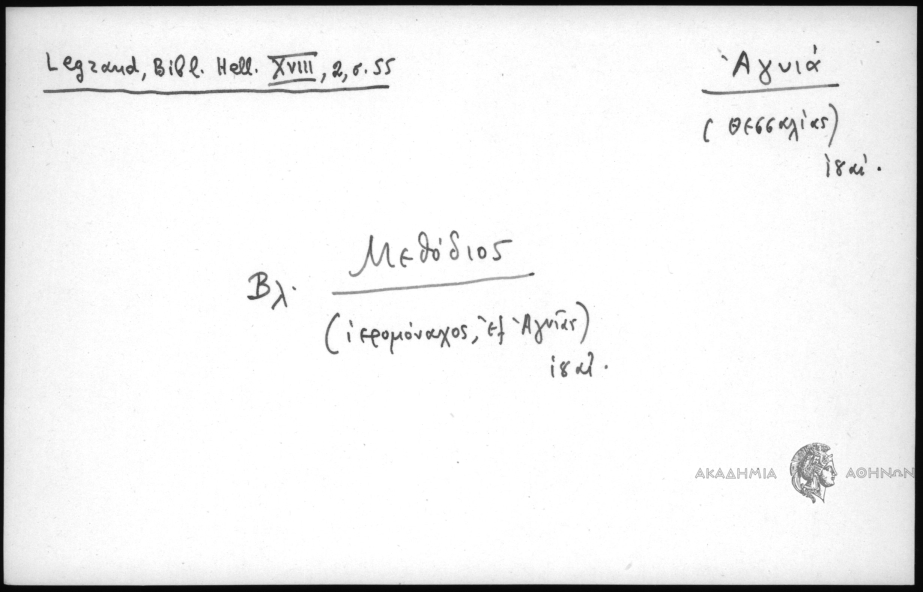 Legrand, Bibl. Hell. XVIII, 2, σ. 55
Ἁγυιά
(Θεσσαλίας)
ιη αἰ.
Βλ. Μεθόδιος
(ἱερομόναχος, ἐξ Ἁγυιᾶς)
ιη αἰ.
ΑΚΑΔΗΜΙΑ ΑΘΗΝΩΝ